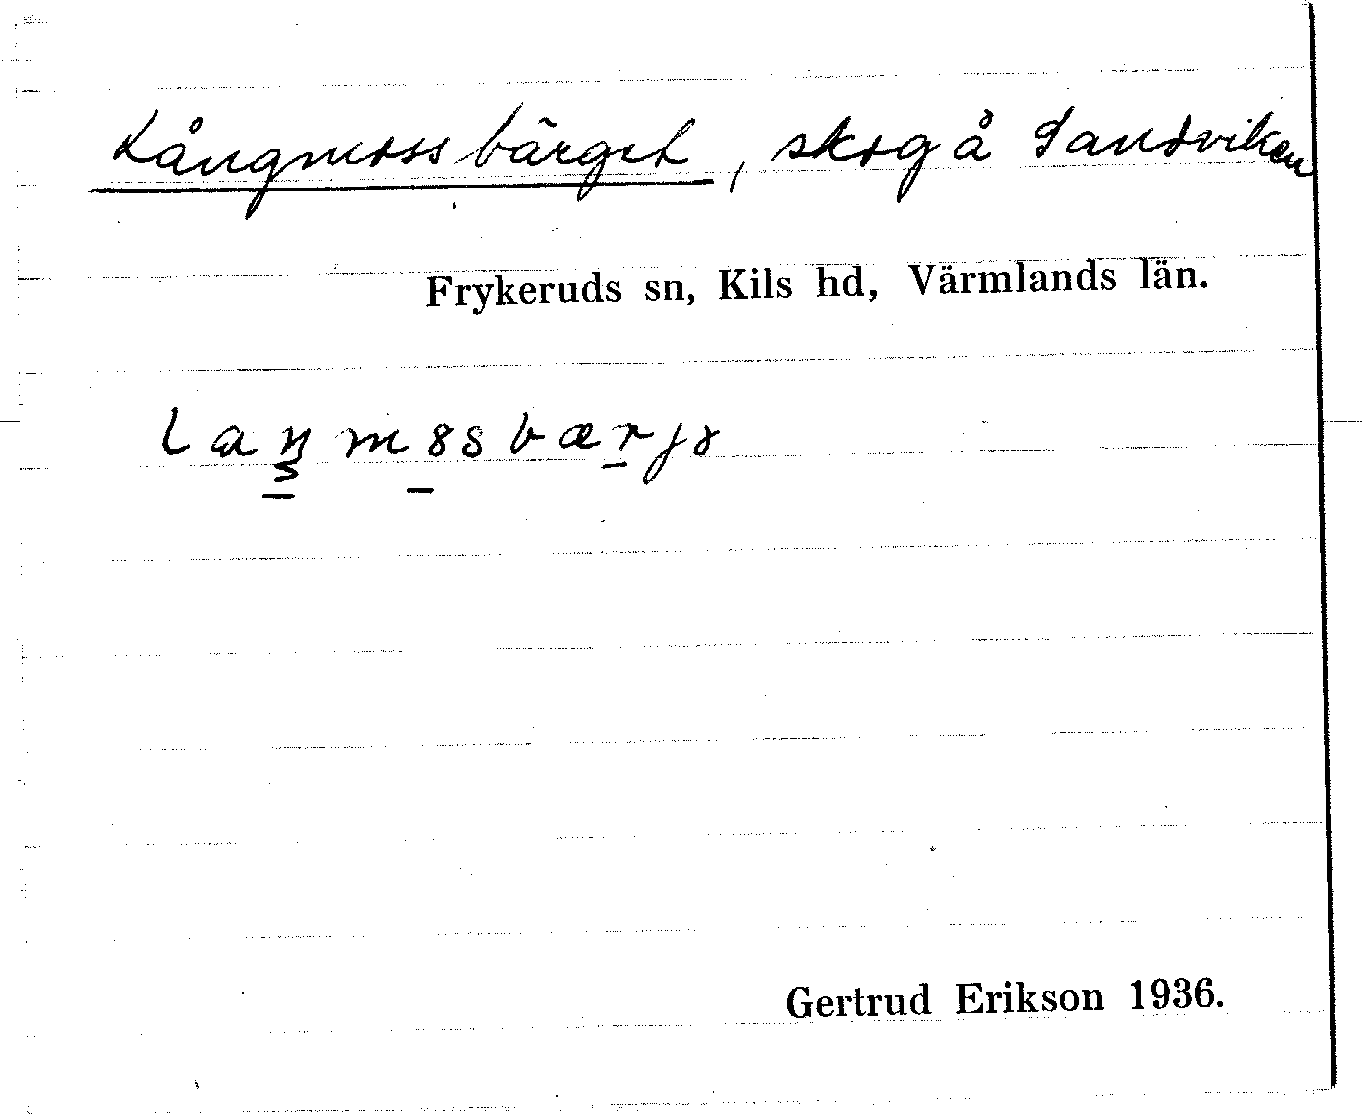 Långmossbärget, skog å Sandviken
Frykeruds sn, Kils hd, Värmlands län.
Gertrud Erikson 1936.